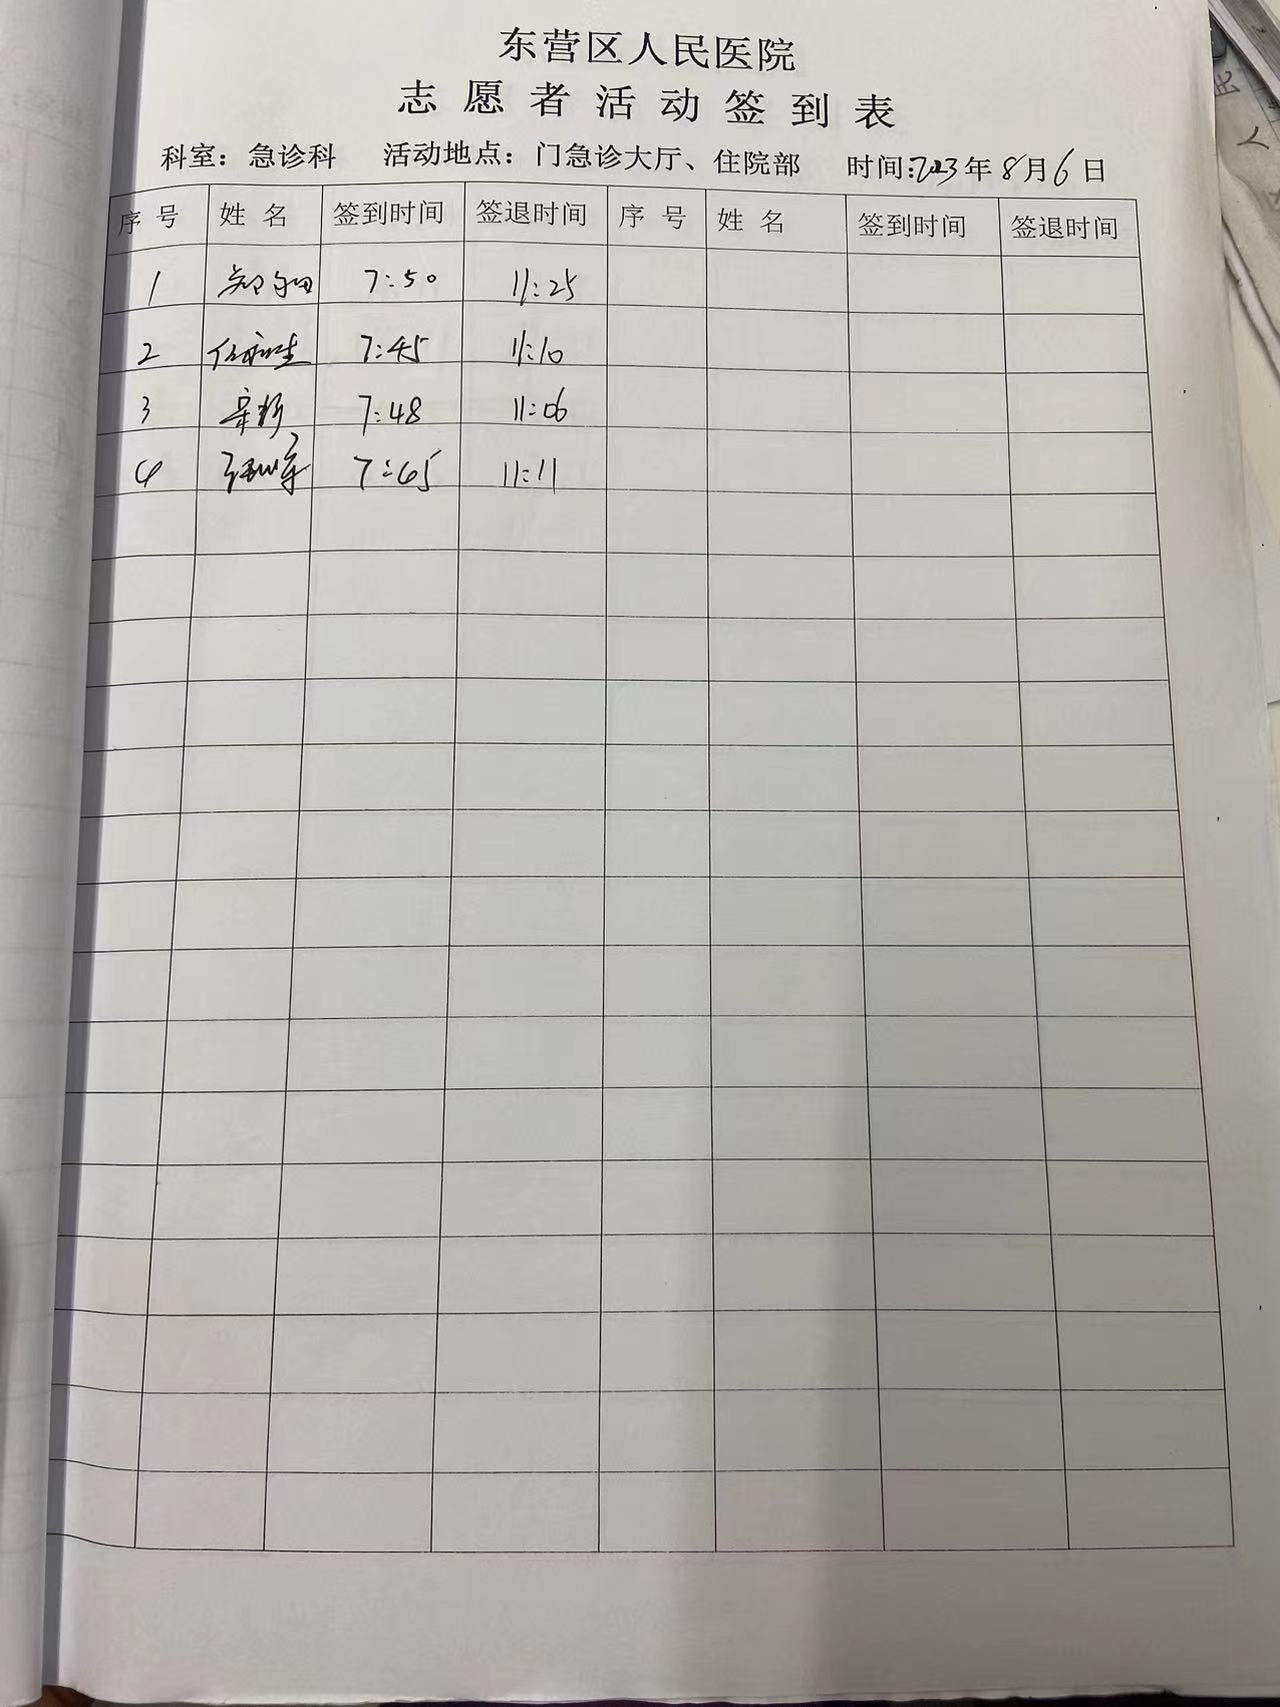 东营区人民医院
志愿者活动签到表
科室：急诊科 活动地点：门急诊大厅、住院部 时间:2023年8月6日
序号 姓名 签到时间 签退时间 序号 姓名 签到时间 签退时间
1 7:50 11:25
2 7:45 11:10
3 7:48 11:06
4 7:45 11:11